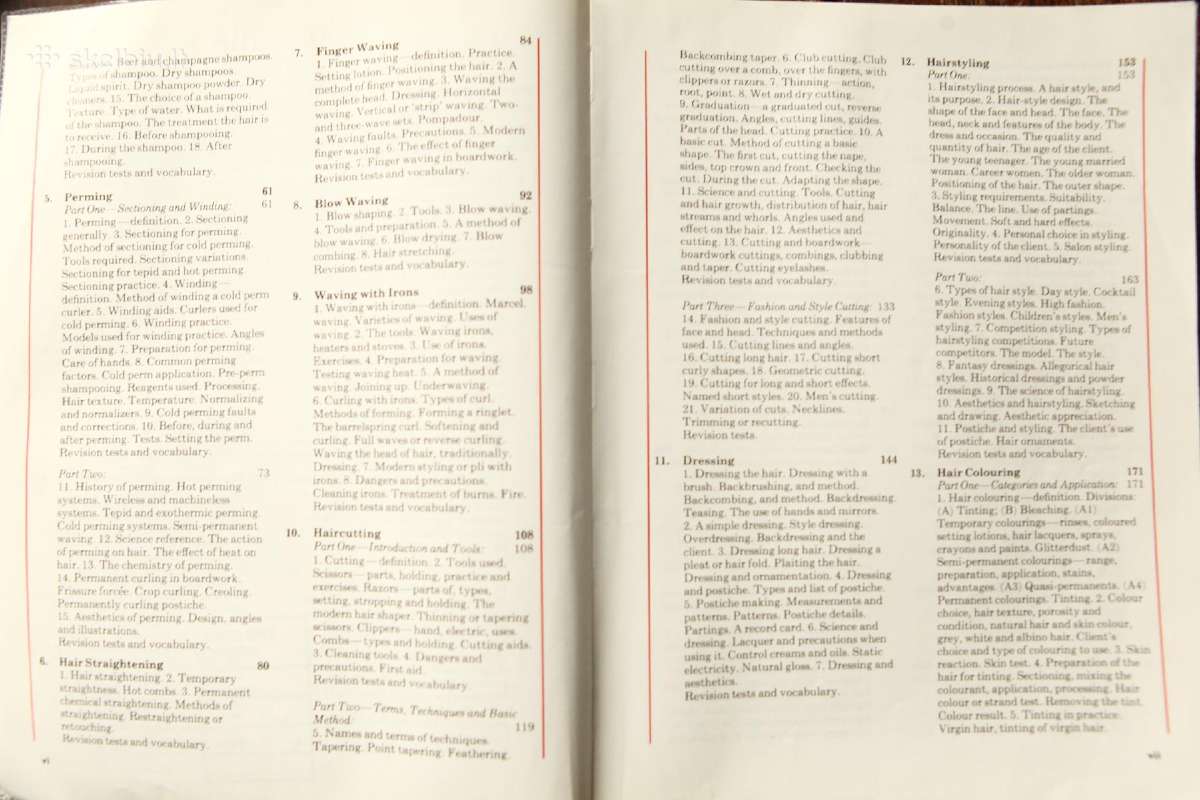 skelbiu.lt
Beer and champagne shampoos.
Types of shampoo. Dry shampoos.
Liquid spirit. Dry shampoo powder. Dry
cleaners. 15. The choice of a shampoo.
Texture. Type of water. What is required
of the shampoo. The treatment the hair is
to receive. 16. Before shampooing.
17. During the shampoo. 18. After
shampooing.
Revision tests and vocabulary.
5. Perming 61
Part One — Sectioning and Winding: 61
1. Perming—definition. 2. Sectioning
generally. 3. Sectioning for perming.
Method of sectioning for cold perming.
Tools required. Sectioning variations.
Sectioning for tepid and hot perming.
Sectioning practice. 4. Winding—
definition. Method of winding a cold perm
curler. 5. Winding aids. Curlers used for
cold perming. 6. Winding practice.
Models used for winding practice. Angles
of winding. 7. Preparation for perming.
Care of hands. 8. Common perming
factors. Cold perm application. Pre-perm
shampooing. Reagents used. Processing.
Hair texture. Temperature. Normalizing
and normalizers. 9. Cold perming faults
and corrections. 10. Before, during and
after perming. Tests. Setting the perm.
Revision tests and vocabulary.
Part Two: 73
11. History of perming. Hot perming
systems. Wireless and machineless
systems. Tepid and exothermic perming.
Cold perming systems. Semi-permanent
waving. 12. Science reference. The action
of perming on hair. The effect of heat on
hair. 13. The chemistry of perming.
14. Permanent curling in boardwork.
Frissure forcée. Crop curling. Creoling.
Permanently curling postiche.
15. Aesthetics of perming. Design, angles
and illustrations.
Revision tests and vocabulary.
6. Hair Straightening 80
1. Hair straightening. 2. Temporary
straightness. Hot combs. 3. Permanent
chemical straightening. Methods of
straightening. Restraightening or
retouching.
Revision tests and vocabulary.
vi
7. Finger Waving 84
1. Finger waving—definition. Practice.
Setting lotion. Positioning the hair. 2. A
method of finger waving. 3. Waving the
complete head. Dressing. Horizontal
waving. Vertical or 'strip' waving. Two-
and three-wave sets. Pompadour.
4. Waving faults. Precautions. 5. Modern
finger waving. 6. The effect of finger
waving. 7. Finger waving in boardwork.
Revision tests and vocabulary.
8. Blow Waving 92
1. Blow shaping. 2. Tools. 3. Blow waving.
4. Tools and preparation. 5. A method of
blow waving. 6. Blow drying. 7. Blow
combing. 8. Hair stretching.
Revision tests and vocabulary.
9. Waving with Irons 98
1. Waving with irons—definition. Marcel.
waving. Varieties of waving. Uses of
waving. 2. The tools. Waving irons,
heaters and stoves. 3. Use of irons.
Exercises. 4. Preparation for waving.
Testing waving heat. 5. A method of
waving. Joining up. Underwaving.
6. Curling with irons. Types of curl.
Methods of forming. Forming a ringlet.
The barrelspring curl. Softening and
curling. Full waves or reverse curling.
Waving the head of hair, traditionally.
Dressing. 7. Modern styling or pli with
irons. 8. Dangers and precautions.
Cleaning irons. Treatment of burns. Fire.
Revision tests and vocabulary.
10. Haircutting 108
Part One—Introduction and Tools: 108
1. Cutting—definition. 2. Tools used.
Scissors—parts, holding, practice and
exercises. Razors—parts of, types,
setting, stropping and holding. The
modern hair shaper. Thinning or tapering
scissors. Clippers—hand, electric, uses.
Combs—types and holding. Cutting aids.
3. Cleaning tools. 4. Dangers and
precautions. First aid.
Revision tests and vocabulary.
Part Two—Terms, Techniques and Basic
Method: 119
5. Names and terms of techniques.
Tapering. Point tapering. Feathering.
Backcombing taper. 6. Club cutting. Club
cutting over a comb, over the fingers, with
clippers or razors. 7. Thinning—action,
root, point. 8. Wet and dry cutting.
9. Graduation—a graduated cut, reverse
graduation. Angles, cutting lines, guides.
Parts of the head. Cutting practice. 10. A
basic cut. Method of cutting a basic
shape. The first cut, cutting the nape,
sides, top crown and front. Checking the
cut. During the cut. Adapting the shape.
11. Science and cutting. Tools. Cutting
and hair growth, distribution of hair, hair
streams and whorls. Angles used and
effect on the hair. 12. Aesthetics and
cutting. 13. Cutting and boardwork—
boardwork cuttings, combings, clubbing
and taper. Cutting eyelashes.
Revision tests and vocabulary.
Part Three—Fashion and Style Cutting: 133
14. Fashion and style cutting. Features of
face and head. Techniques and methods
used. 15. Cutting lines and angles.
16. Cutting long hair. 17. Cutting short
curly shapes. 18. Geometric cutting.
19. Cutting for long and short effects.
Named short styles. 20. Men's cutting.
21. Variation of cuts. Necklines.
Trimming or recutting.
Revision tests.
11. Dressing 144
1. Dressing the hair. Dressing with a
brush. Backbrushing, and method.
Backcombing, and method. Backdressing.
Teasing. The use of hands and mirrors.
2. A simple dressing. Style dressing.
Overdressing. Backdressing and the
client. 3. Dressing long hair. Dressing a
pleat or hair fold. Plaiting the hair.
Dressing and ornamentation. 4. Dressing
and postiche. Types and list of postiche.
5. Postiche making. Measurements and
patterns. Patterns. Postiche details.
Partings. A record card. 6. Science and
dressing. Lacquer and precautions when
using it. Control creams and oils. Static
electricity. Natural gloss. 7. Dressing and
aesthetics.
Revision tests and vocabulary.
12. Hairstyling 153
Part One: 153
1. Hairstyling process. A hair style, and
its purpose. 2. Hair-style design. The
shape of the face and head. The face. The
head, neck and features of the body. The
dress and occasion. The quality and
quantity of hair. The age of the client.
The young teenager. The young married
woman. Career women. The older woman.
Positioning of the hair. The outer shape.
3. Styling requirements. Suitability.
Balance. The line. Use of partings.
Movement. Soft and hard effects.
Originality. 4. Personal choice in styling.
Personality of the client. 5. Salon styling.
Revision tests and vocabulary.
Part Two: 163
6. Types of hair style. Day style. Cocktail
style. Evening styles. High fashion.
Fashion styles. Children's styles. Men's
styling. 7. Competition styling. Types of
hairstyling competitions. Future
competitors. The model. The style.
8. Fantasy dressings. Allegorical hair
styles. Historical dressings and powder
dressings. 9. The science of hairstyling.
10. Aesthetics and hairstyling. Sketching
and drawing. Aesthetic appreciation.
11. Postiche and styling. The client's use
of postiche. Hair ornaments.
Revision tests and vocabulary.
13. Hair Colouring 171
Part One—Categories and Application: 171
1. Hair colouring—definition. Divisions:
(A) Tinting; (B) Bleaching. (A1)
Temporary colourings—rinses, coloured
setting lotions, hair lacquers, sprays,
crayons and paints. Glitterdust. (A2)
Semi-permanent colourings—range,
preparation, application, stains,
advantages. (A3) Quasi-permanents. (A4)
Permanent colourings. Tinting. 2. Colour
choice, hair texture, porosity and
condition, natural hair and skin colour,
grey, white and albino hair. Client's
choice and type of colouring to use. 3. Skin
reaction. Skin test. 4. Preparation of the
hair for tinting. Sectioning, mixing the
colourant, application, processing. Hair
colour or strand test. Removing the tint.
Colour result. 5. Tinting in practice.
Virgin hair, tinting of virgin hair.
viii